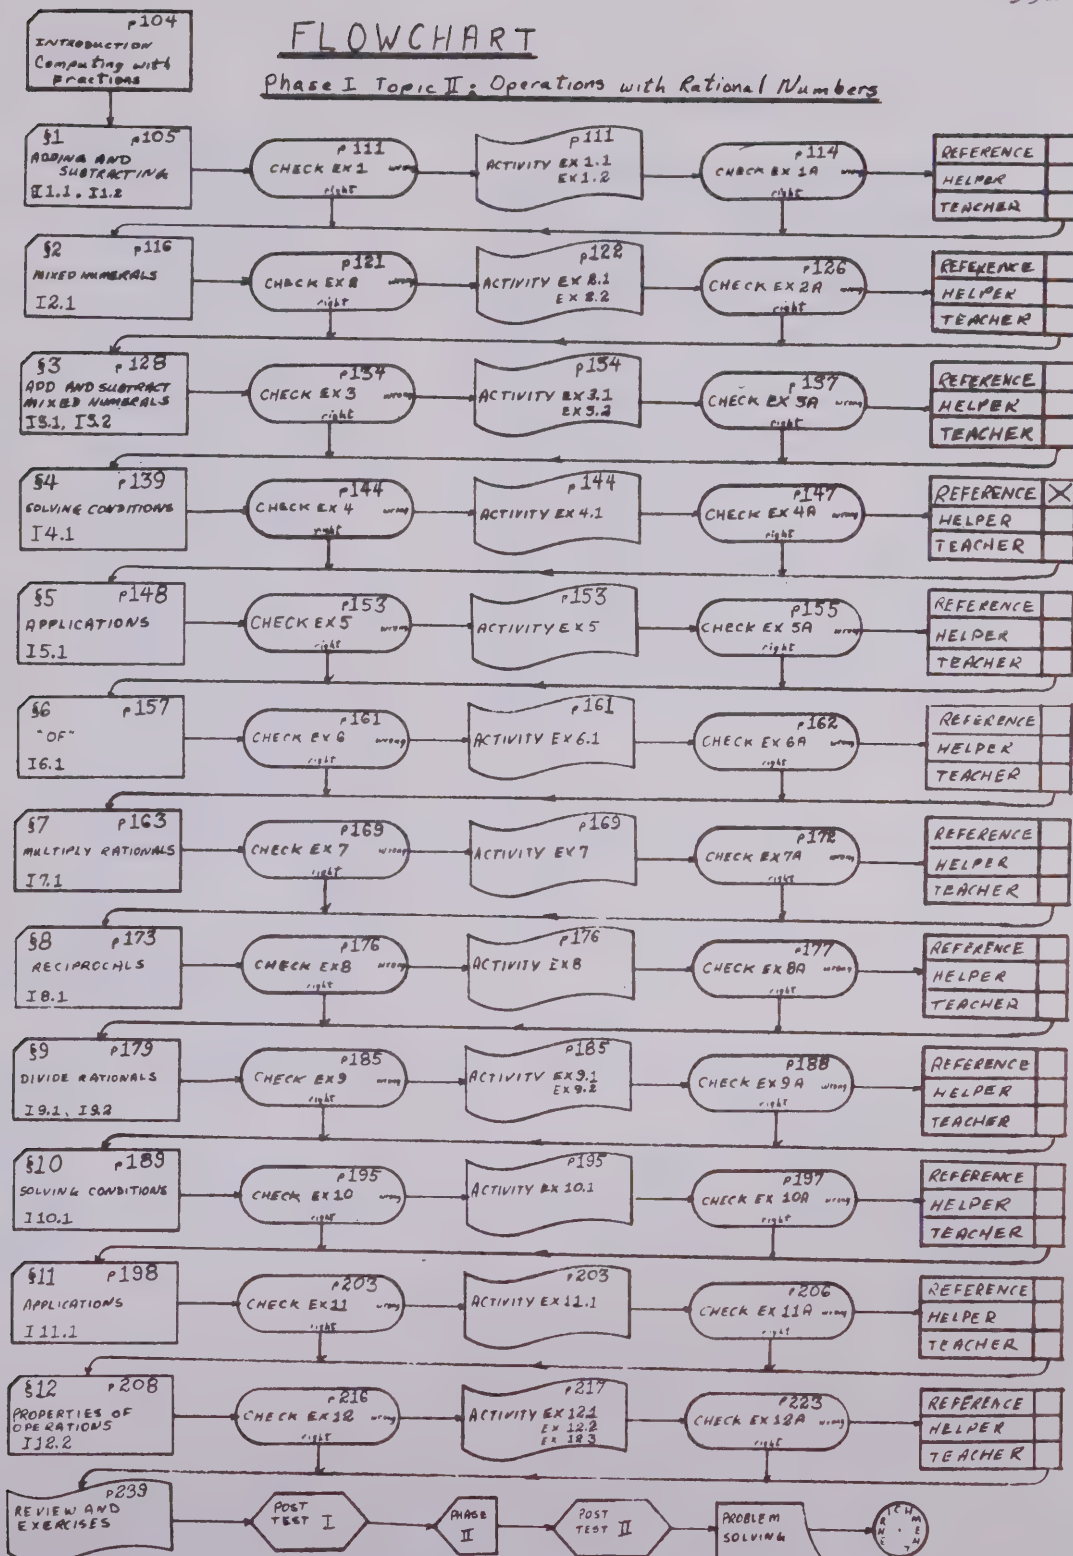 p104
INTRODUCTION
Computing with
fractions
FLOWCHART
Phase I Topic II: Operations with Rational Numbers
§1 p105
ADDING AND
SUBTRACTING
I1.1, I1.2
p111
CHECK EX 1 wrong
right
p111
ACTIVITY EX 1.1
EX 1.2
p114
CHECK EX 1A wrong
right
REFERENCE
HELPER
TEACHER
§2 p116
MIXED NUMERALS
I2.1
p121
CHECK EX 2 wrong
right
p122
ACTIVITY EX 2.1
EX 2.2
p126
CHECK EX 2A wrong
right
REFERENCE
HELPER
TEACHER
§3 p128
ADD AND SUBTRACT
MIXED NUMERALS
I3.1, I3.2
p134
CHECK EX 3 wrong
right
p134
ACTIVITY EX 3.1
EX 3.2
p137
CHECK EX 3A wrong
right
REFERENCE
HELPER
TEACHER
§4 p139
SOLVING CONDITIONS
I4.1
p144
CHECK EX 4 wrong
right
p144
ACTIVITY EX 4.1
p147
CHECK EX 4A wrong
right
REFERENCE X
HELPER
TEACHER
§5 p148
APPLICATIONS
I5.1
p153
CHECK EX 5 wrong
right
p153
ACTIVITY EX 5
p155
CHECK EX 5A wrong
right
REFERENCE
HELPER
TEACHER
§6 p157
"OF"
I6.1
p161
CHECK EX 6 wrong
right
p161
ACTIVITY EX 6.1
p162
CHECK EX 6A wrong
right
REFERENCE
HELPER
TEACHER
§7 p163
MULTIPLY RATIONALS
I7.1
p169
CHECK EX 7 wrong
right
p169
ACTIVITY EX 7
p172
CHECK EX 7A wrong
right
REFERENCE
HELPER
TEACHER
§8 p173
RECIPROCALS
I8.1
p176
CHECK EX 8 wrong
right
p176
ACTIVITY EX 8
p177
CHECK EX 8A wrong
right
REFERENCE
HELPER
TEACHER
§9 p179
DIVIDE RATIONALS
I9.1, I9.2
p185
CHECK EX 9 wrong
right
p185
ACTIVITY EX 9.1
EX 9.2
p188
CHECK EX 9A wrong
right
REFERENCE
HELPER
TEACHER
§10 p189
SOLVING CONDITIONS
I10.1
p195
CHECK EX 10 wrong
right
p195
ACTIVITY EX 10.1
p197
CHECK EX 10A wrong
right
REFERENCE
HELPER
TEACHER
§11 p198
APPLICATIONS
I11.1
p203
CHECK EX 11 wrong
right
p203
ACTIVITY EX 11.1
p206
CHECK EX 11A wrong
right
REFERENCE
HELPER
TEACHER
§12 p208
PROPERTIES OF
OPERATIONS
I12.2
p216
CHECK EX 12 wrong
right
p217
ACTIVITY EX 12.1
EX 12.2
EX 12.3
p223
CHECK EX 12A wrong
right
REFERENCE
HELPER
TEACHER
p239
REVIEW AND
EXERCISES
POST
TEST I
PHASE
II
POST
TEST II
PROBLEM
SOLVING
ENRICHMENT